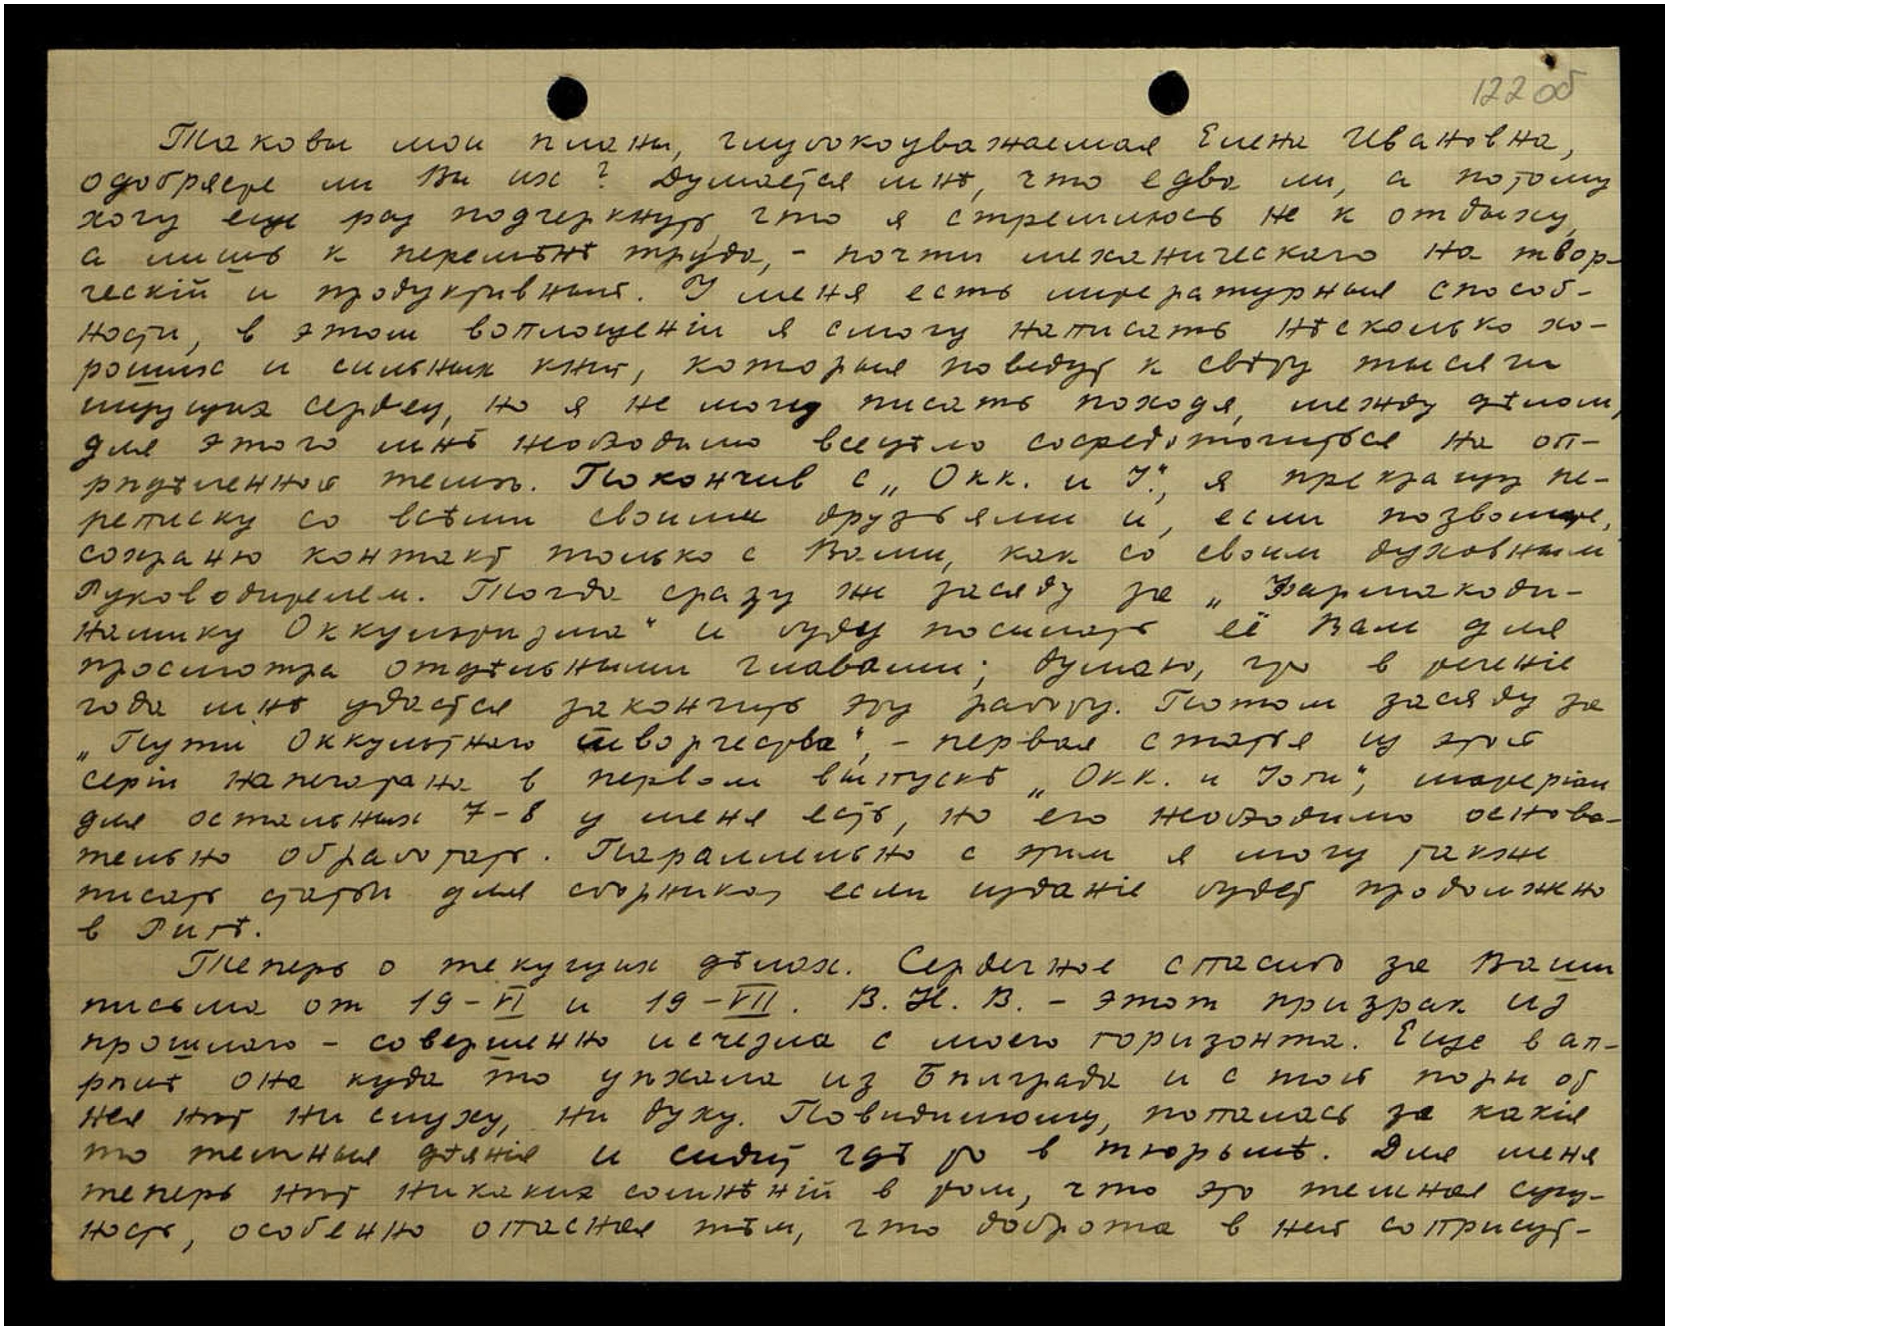 122об
Таковы мои планы, глубокоуважаемая Елена Ивановна,
одобряете ли Вы их? Думается мнѣ, что едва ли, а потому
хочу еще раз подчеркнуть, что я стремлюсь не к отдыху,
а лишь к перемѣнѣ труда, - почти механическаго на твор-
ческій и продуктивный. У меня есть литературныя способ-
ности, в этом воплощеніи я смогу написать нѣсколько хо-
роших и сильных книг, которыя поведут к свѣту тысячи
ищущих сердец, но я не могу писать походя, между дѣлом,
для этого мнѣ необходимо всецѣло сосредоточиться на оп-
редѣленной темѣ. Покончив с „Окк. и Й.", я прекращу пе-
реписку со всѣми своими друзьями и, если позволите,
сохраню контакт только с Вами, как со своим духовным
Руководителем. Тогда сразу же засяду за „Фармакоди-
намику Оккультизма" и буду посылать её Вам для
просмотра отдѣльными главами; думаю, что в теченіе
года мнѣ удастся закончить эту работу. Потом засяду за
„Пути Оккультнаго творчества", - первая статья из этой
серіи напечатана в первом выпускѣ „Окк. и Йоги", матеріал
для остальных 7-8 у меня есть, но его необходимо основа-
тельно обработать. Параллельно с этим я могу также
писать статьи для сборника, если изданіе будет продолжено
в Ригѣ.
Теперь о текущих дѣлах. Сердечное спасибо за Ваши
письма от 19-VI и 19-VII. В. Н. В. - этот призрак из
прошлаго - совершенно исчезла с моего горизонта. Еще в ап-
рѣлѣ она куда то уѣхала из Бѣлграда и с той поры об
ней нѣт ни слуху, ни духу. Повидимому, попалась за какія
то темныя дѣянія и сидит гдѣ то в тюрьмѣ. Для меня
теперь нѣт никаких сомнѣній в том, что это темная сущ-
ность, особенно опасная тѣм, что доброта в ней соприсут-